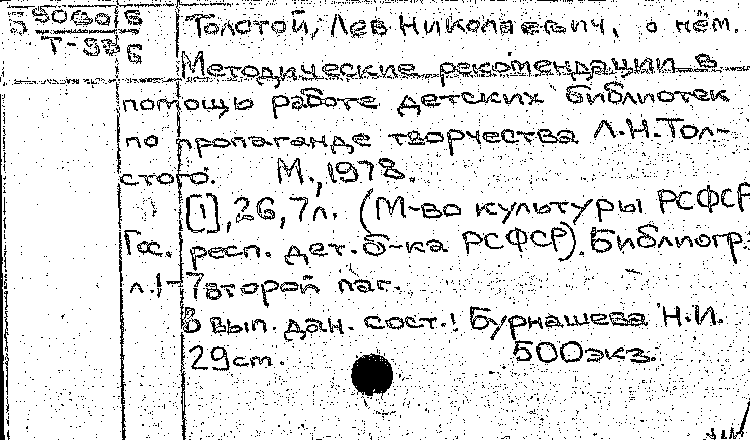 Толстой, Лев Николаевич, о нём.
Т-
Методические рекомендации в
помощь работе детских библиотек
по пропаганде творчества Л.Н.Тол-
стого. М., 1978.
[1], 26, 7л. (М-во культуры РСФСР
Гос. респ. дет. б-ка РСФСР). Библиогр.:
л.1-7 второй паг.
В вып. дан. сост.: Бурнашева Н.И.
29см. 500экз.